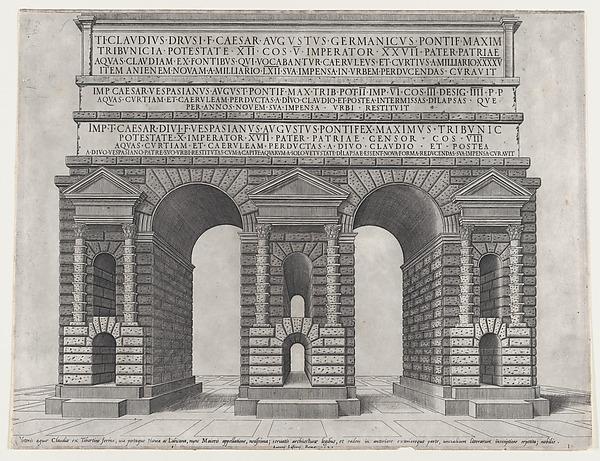 TI·CLAVDIVS·DRVSI·F·CAESAR·AVGVSTVS·GERMANICVS·PONTIF·MAXIM
TRIBVNICIA·POTESTATE·XII·COS·V·IMPERATOR·XXVII·PATER·PATRIAE
AQVAS·CLAVDIAM·EX·FONTIBVS·QVI·VOCABANTVR·CAERVLEVS·ET·CVRTIVS·A·MILLIARIO·XXXXV
ITEM·ANIENEM·NOVAM·A·MILLIARIO·LXII·SVA·IMPENSA·IN·VRBEM·PERDVCENDAS·CVRAVIT
IMP·CAESAR·VESPASIANVS·AVGVST·PONTIF·MAX·TRIB·POT·II·IMP·VI·COS·III·DESIG·IIII·P·P
AQVAS·CVRTIAM·ET·CAERVLEAM·PERDVCTAS·A·DIVO·CLAVDIO·ET·POSTEA·INTERMISSAS·DILAPSAS·QVE
PER·ANNOS·NOVEM·SVA·IMPENSA·VRBI·RESTITVIT
IMP·T·CAESAR·DIVI·F·VESPASIANVS·AVGVSTVS·PONTIFEX·MAXIMVS·TRIBVNIC
POTESTATE·X·IMPERATOR·XVII·PATER·PATRIAE·CENSOR·COS·VIII
AQVAS·CVRTIAM·ET·CAERVLEAM·PERDVCTAS·A·DIVO·CLAVDIO·ET·POSTEA
A·DIVO·VESPASIANO·PATRE·SVO·VRBI·RESTITVTAS·CVM·A·CAPITE·AQVARVM·A·SOLO·VETVSTATE·DILAPSAE·ESSENT·NOVA·FORMA·REDVCENDAS·SVA·IMPENSA·CVRAVIT
aquae Claudiae ex Tiburtino fornix, via portaque Nevia ac Labicana, nunc Maioris appellatione, notissima; servatis architecturae legibus, et eadem in anteriore exterioreque parte, uncialium literarum inscriptione repetita; nobilis.